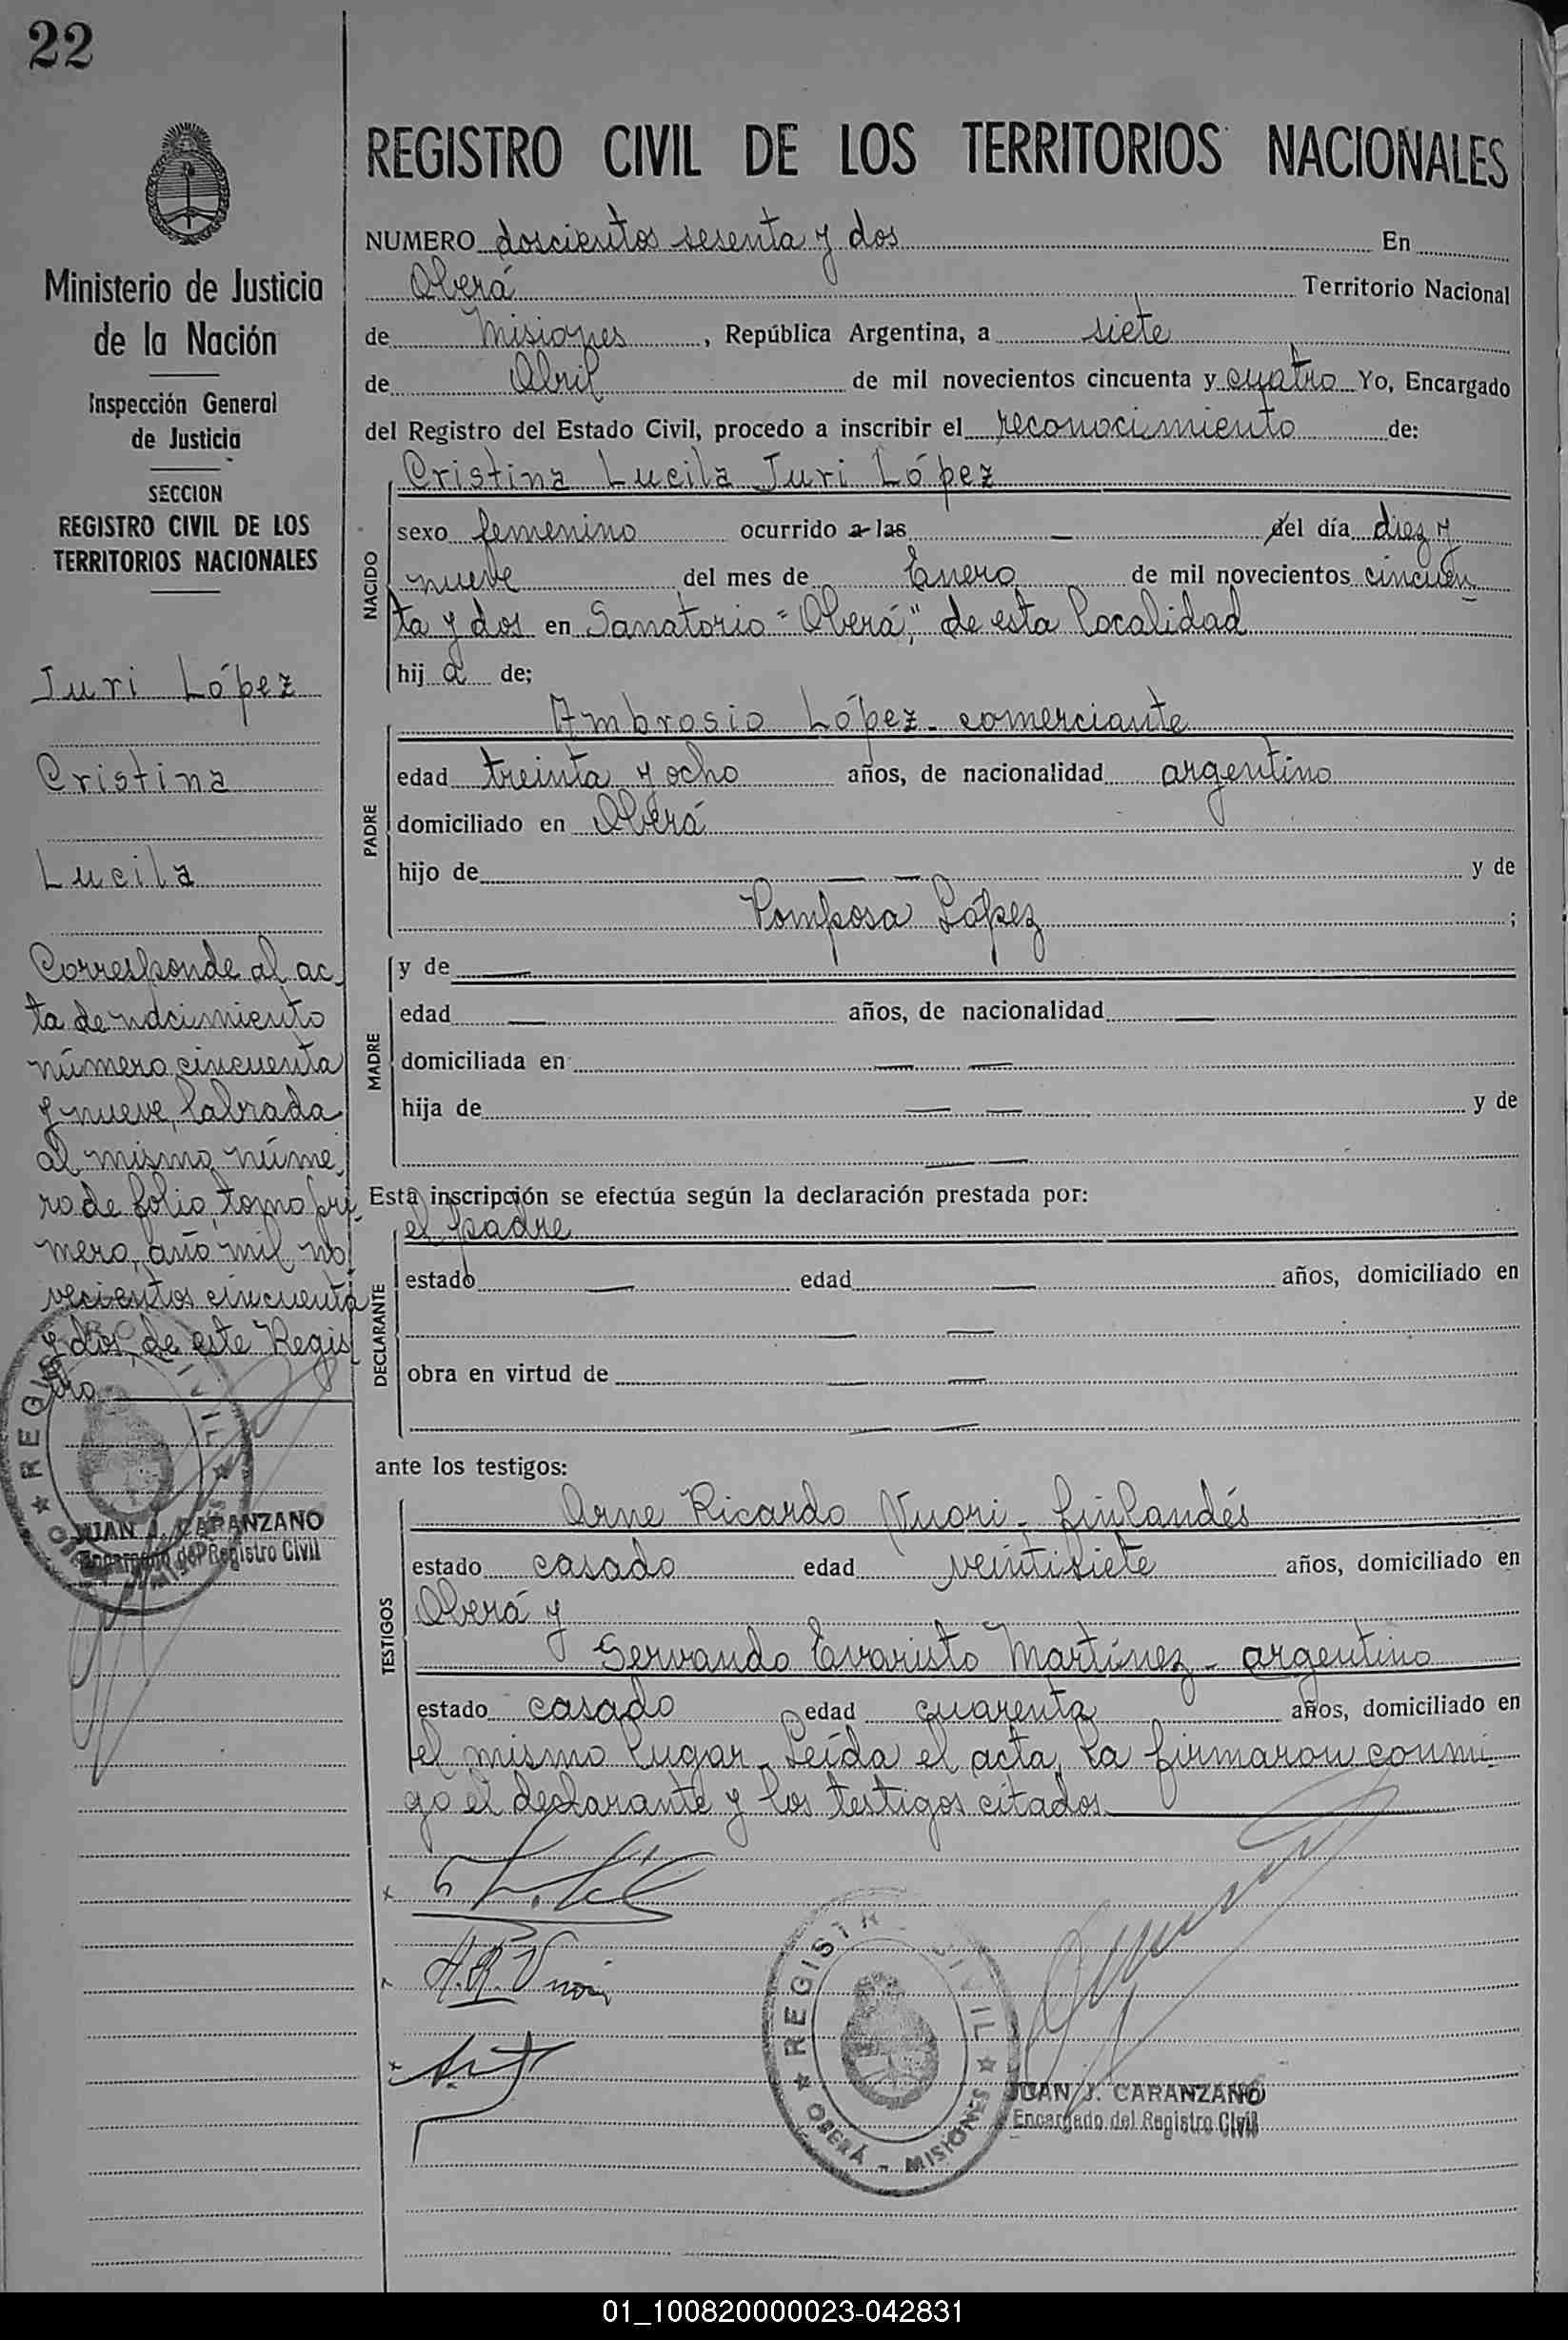 22
REGISTRO CIVIL DE LOS TERRITORIOS NACIONALES
Ministerio de Justicia
de la Nación
Inspección General
de Justicia
SECCION
REGISTRO CIVIL DE LOS
TERRITORIOS NACIONALES
Juri López
Cristina
Lucila
Corresponde al ac-
ta de nacimiento
número cincuenta
y nueve, labrada
al mismo núme-
ro de folio, tomo pri-
mero, año mil no
vecientos cincuenta
y dos, de este Regis
tro.
REGISTRO CIVIL
OBERÁ - MISIONES
JUAN J. CARANZANO
Encargado del Registro Civil
NUMERO doscientos sesenta y dos En
Oberá Territorio Nacional
de Misiones, República Argentina, a siete
de Abril de mil novecientos cincuenta y cuatro Yo, Encargado
del Registro del Estado Civil, procedo a inscribir el reconocimiento de:
NACIDO
Cristina Lucila Juri López
sexo femenino ocurrido a las — del día diez y
nueve del mes de Enero de mil novecientos cincuen
ta y dos en Sanatorio "Oberá", de esta localidad
hij a de;
PADRE
Ambrosio López - comerciante
edad treinta y ocho años, de nacionalidad argentino
domiciliado en Oberá
hijo de — — y de
Pomposa López ;
MADRE
y de —
edad — años, de nacionalidad —
domiciliada en — —
hija de — — y de
— —
Esta inscripción se efectúa según la declaración prestada por:
DECLARANTE
el padre
estado — edad — años, domiciliado en
— —
obra en virtud de — —
— —
ante los testigos:
TESTIGOS
Arne Ricardo Vuori - finlandés
estado casado edad veintisiete años, domiciliado en
Oberá y
Servando Evaristo Martínez - argentino
estado casado edad cuarenta años, domiciliado en
el mismo lugar. Leída el acta, la firmaron conmi-
go el declarante y los testigos citados.
A.R. Vuori
REGISTRO CIVIL
OBERÁ - MISIONES
JUAN J. CARANZANO
Encargado del Registro Civil
01_100820000023-042831